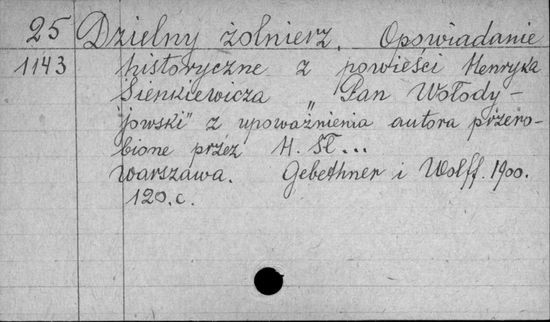 25 Dzielny żołnierz. Opowiadanie
1143 historyczne z powieści Henryka
Sienkiewicza „Pan Wołody-
jowski" z upoważnienia autora przero-
bione przez H. St...
Warszawa. Gebethner i Wolff. 1900.
120.c.